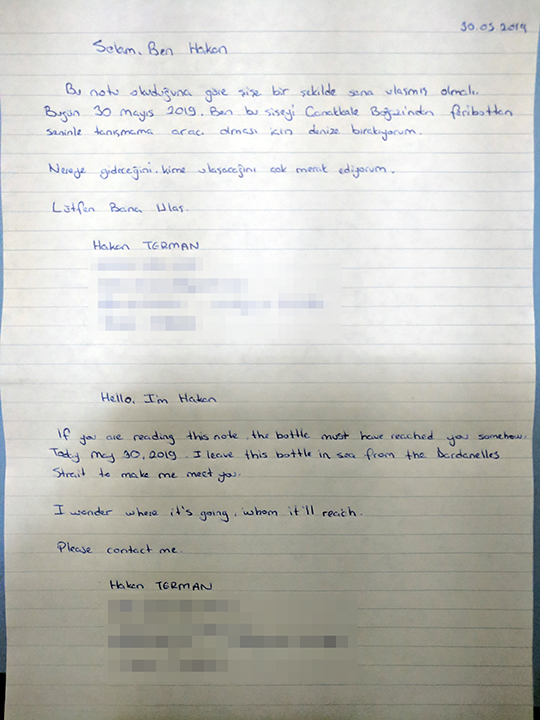 30.05.2019
Selam, Ben Hakan
Bu notu okuduğuna göre şişe bir şekilde sana ulaşmış olmalı.
Bugün 30 mayıs 2019. Ben bu şişeyi Çanakkale Boğazından feribottan
seninle tanışmama aracı olması için denize bırakıyorum.
Nereye gideceğini, kime ulaşacağını çok merak ediyorum.
Lütfen Bana Ulaş.
Hakan TERMAN
Hello, I'm Hakan
If you are reading this note, the bottle must have reached you somehow.
Today may 30, 2019. I leave this bottle in sea from the Dardanelles
Strait to make me meet you.
I wonder where it's going, whom it'll reach.
Please contact me.
Hakan TERMAN